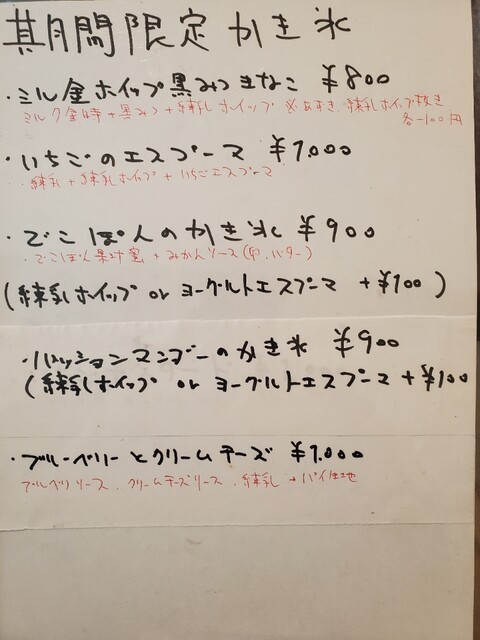 期間限定かき氷
・ミル金ホイップ黒みつきなこ ¥800
ミルク金時+黒みつ+練乳ホイップ ※あずき、練乳ホイップ抜き
各-100円
・いちごのエスプーマ ¥1,000
・練乳+練乳ホイップ+いちごエスプーマ
・でこぽんのかき氷 ¥900
・でこぽん果汁蜜+みかんソース(卵、バター)
(練乳ホイップorヨーグルトエスプーマ +¥100)
・パッションマンゴーのかき氷 ¥900
(練乳ホイップ or ヨーグルトエスプーマ+¥100
・ブルーベリーとクリームチーズ ¥1,000
ブルベリソース、クリームチーズソース、練乳+パイ生地